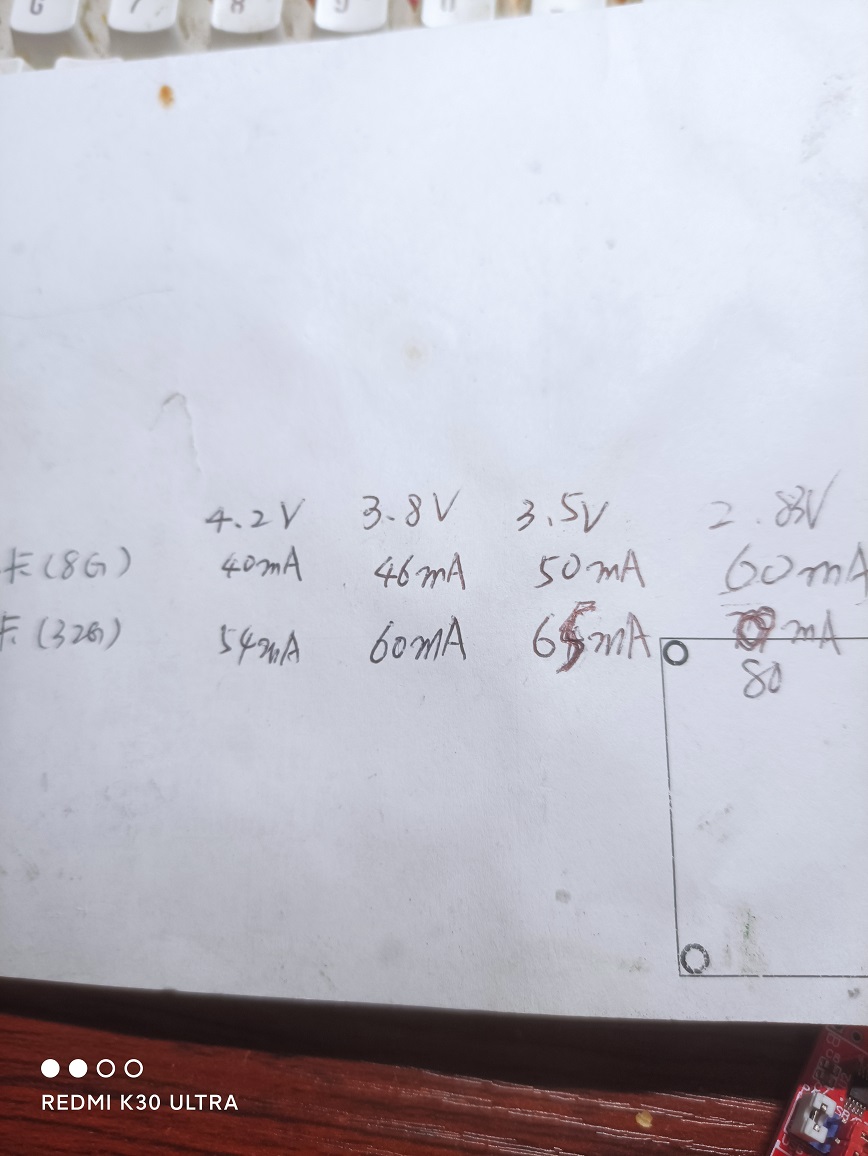 4.2V 3.8V 3.5V 2.83V
卡(8G) 40mA 46mA 50mA 60mA
卡(32G) 54mA 60mA 65mA mA
80
REDMI K30 ULTRA